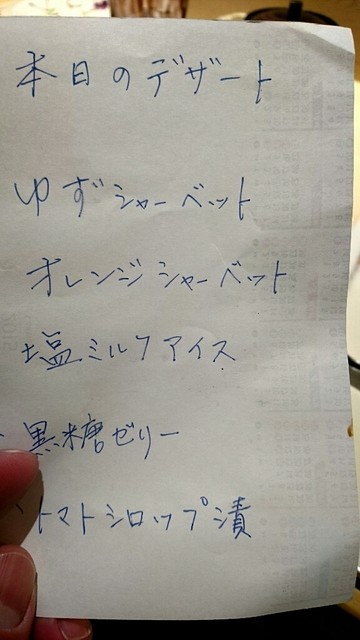 本日のデザート
ゆずシャーベット
オレンジシャーベット
塩ミルクアイス
黒糖ゼリー
トマトシロップ漬